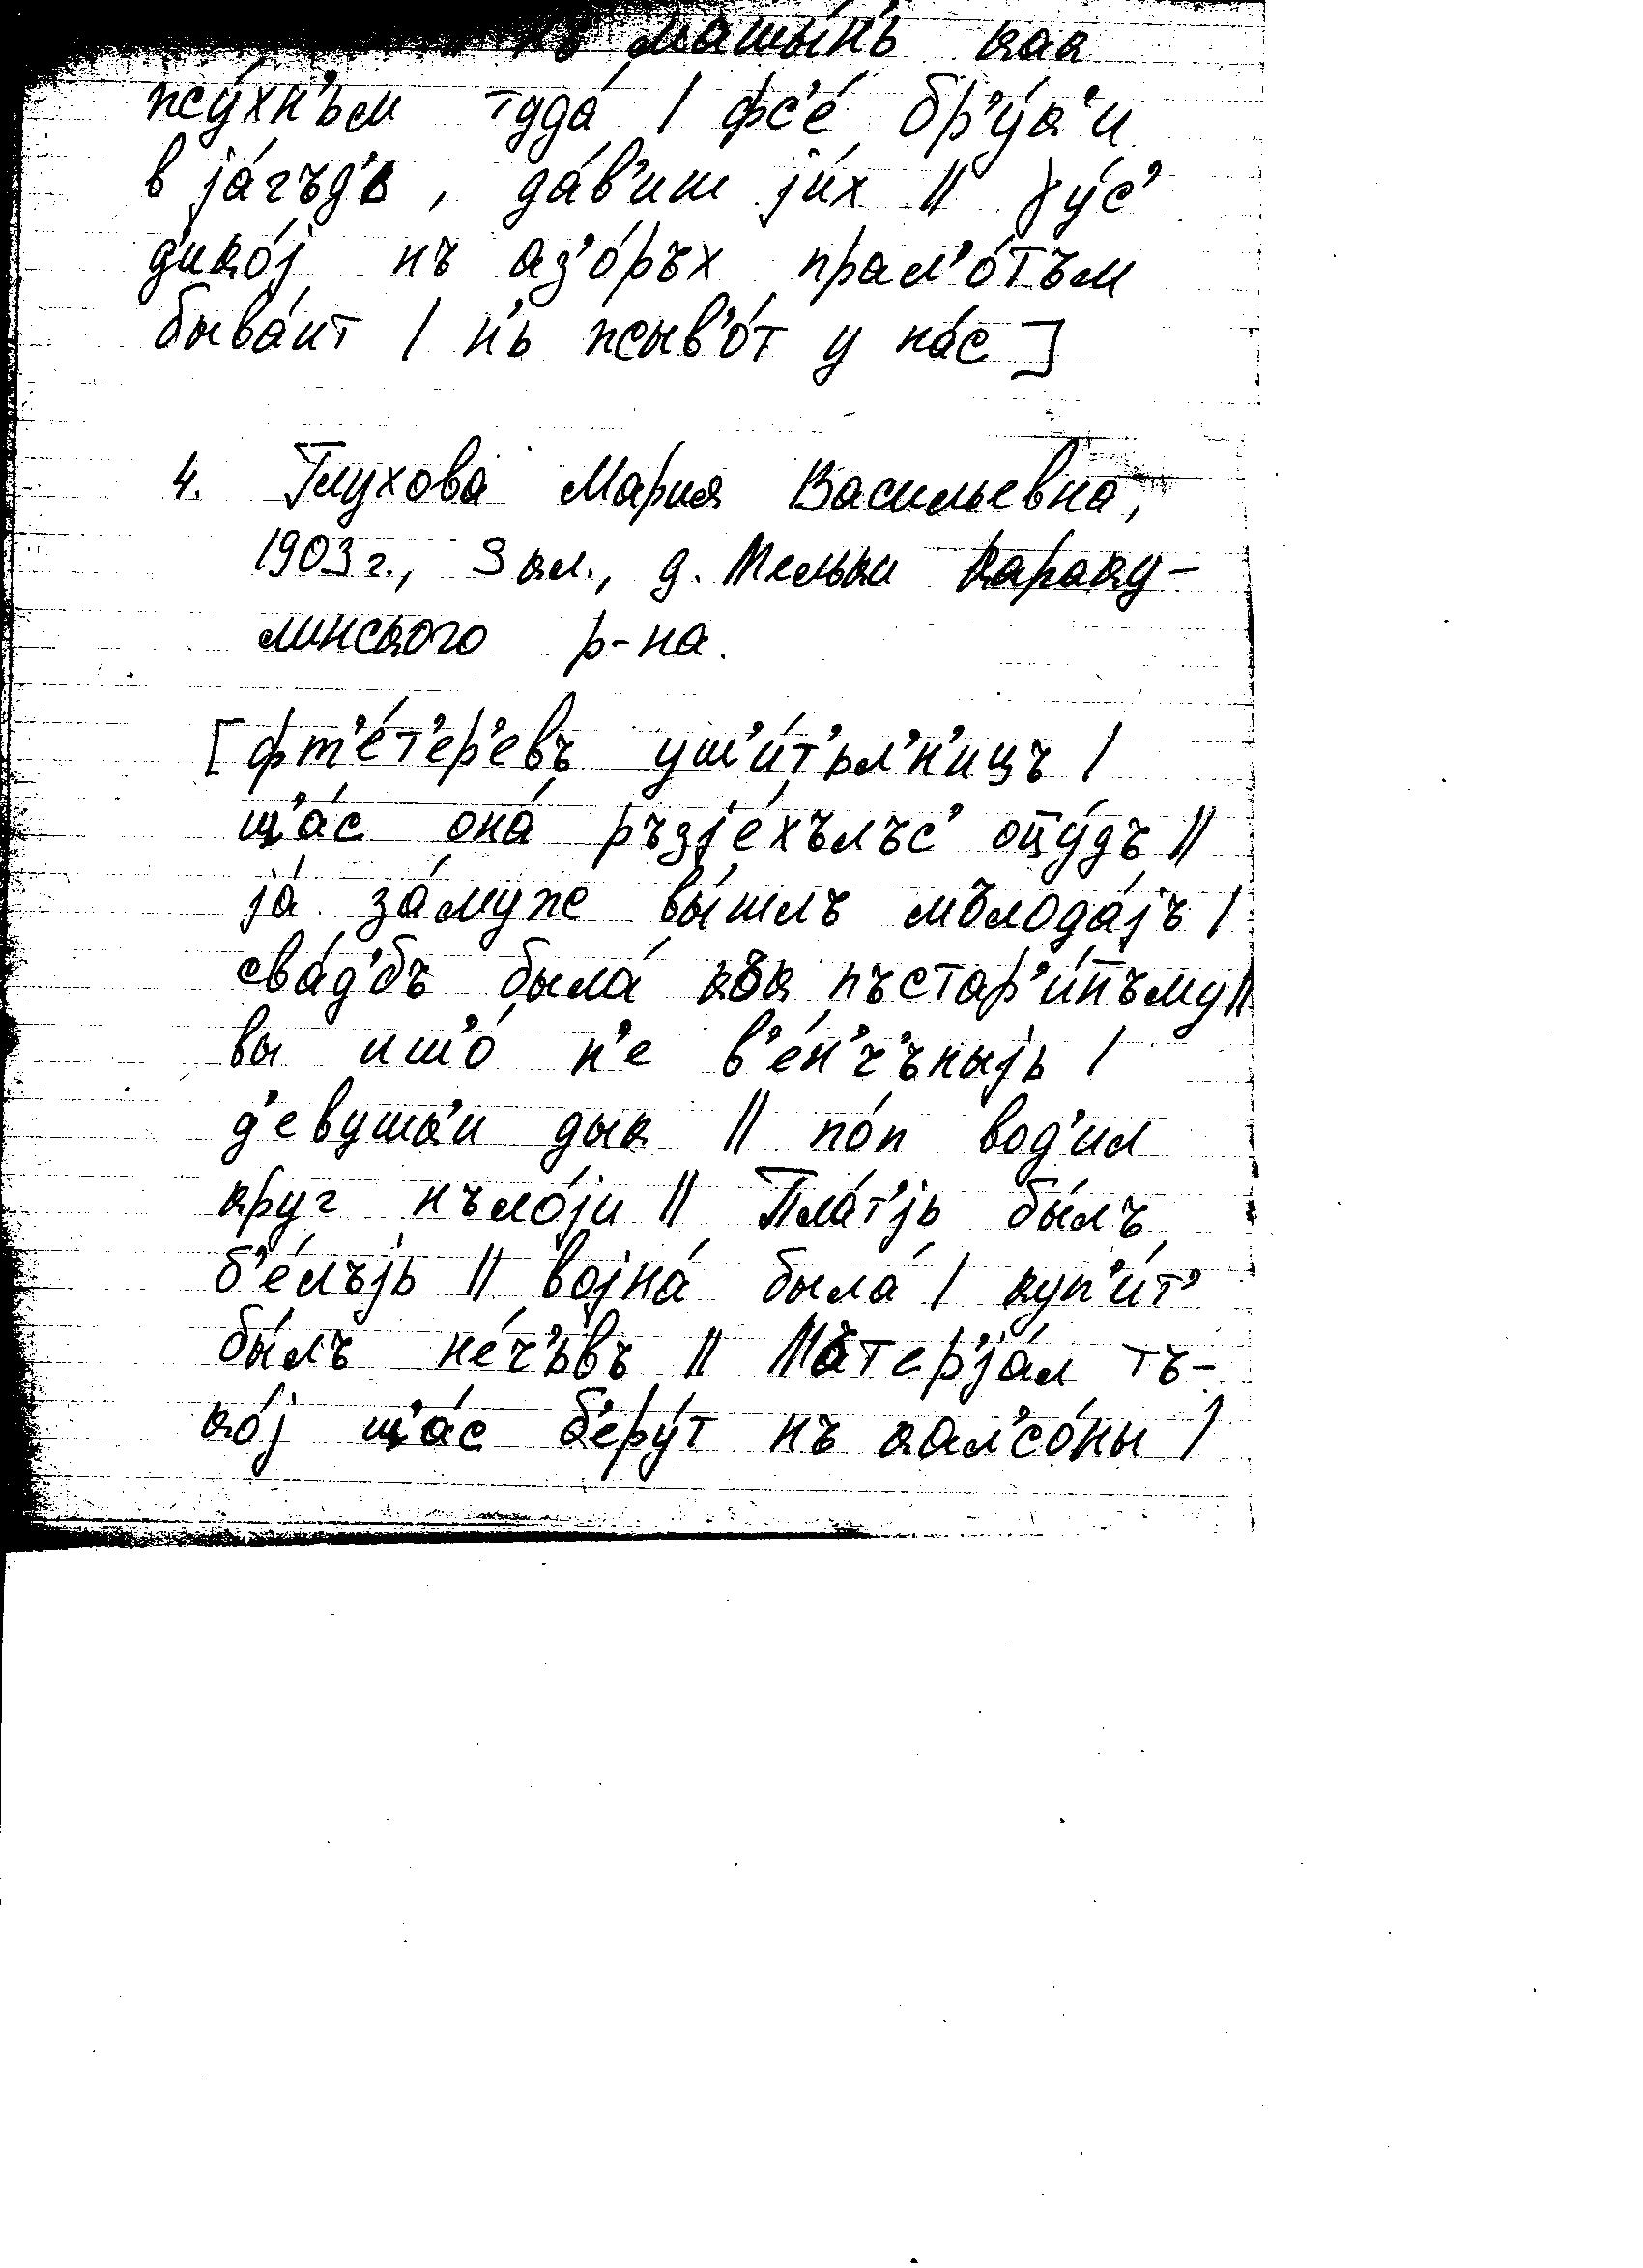 нъ машы́нь как
жу́хн'ьм туда́ / фс'е́ бр'у́к'и
в jа́гъд'ь , да́в'иш jи́х // γу́с'
д'ико́j нъ аз'о́ръх прал'о́тъм
быва́ит / н'ь жыв'о́т у на́с ]
4. Глухова Мария Васильевна,
1903 г., 3 кл., д. Мельки Караку-
линского р-на.
[ фт'е́т'ер'евъ уш'и́т'ьл'н'ицъ /
щ'а́с она́ ръзjе́хълъс' отту́дъ //
jа́ за́муже вы́шлъ мълода́jъ /
сва́д'бъ была́ как пъстар'и́нъму //
вы иш'о́ н'е в'е́н'ч'ьныjь /
д'евушк'и дык // по́п вод'ил
круг нъло́jи // Пла́т'jь бы́лъ
б'е́лъjь // воjна́ была́ / куп'и́т'
бы́лъ не́ч'ьвъ // Мътер'jа́л тъ-
ко́j щ'а́с б'еру́т нъ кал'со́ны /